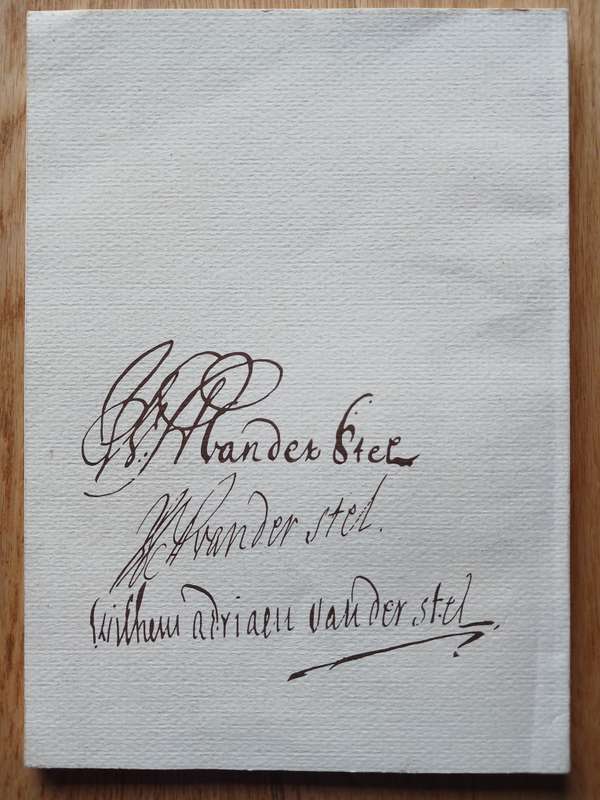 W. A. vander Stel
W A vander stel.
Wilhem adriaen vander stel